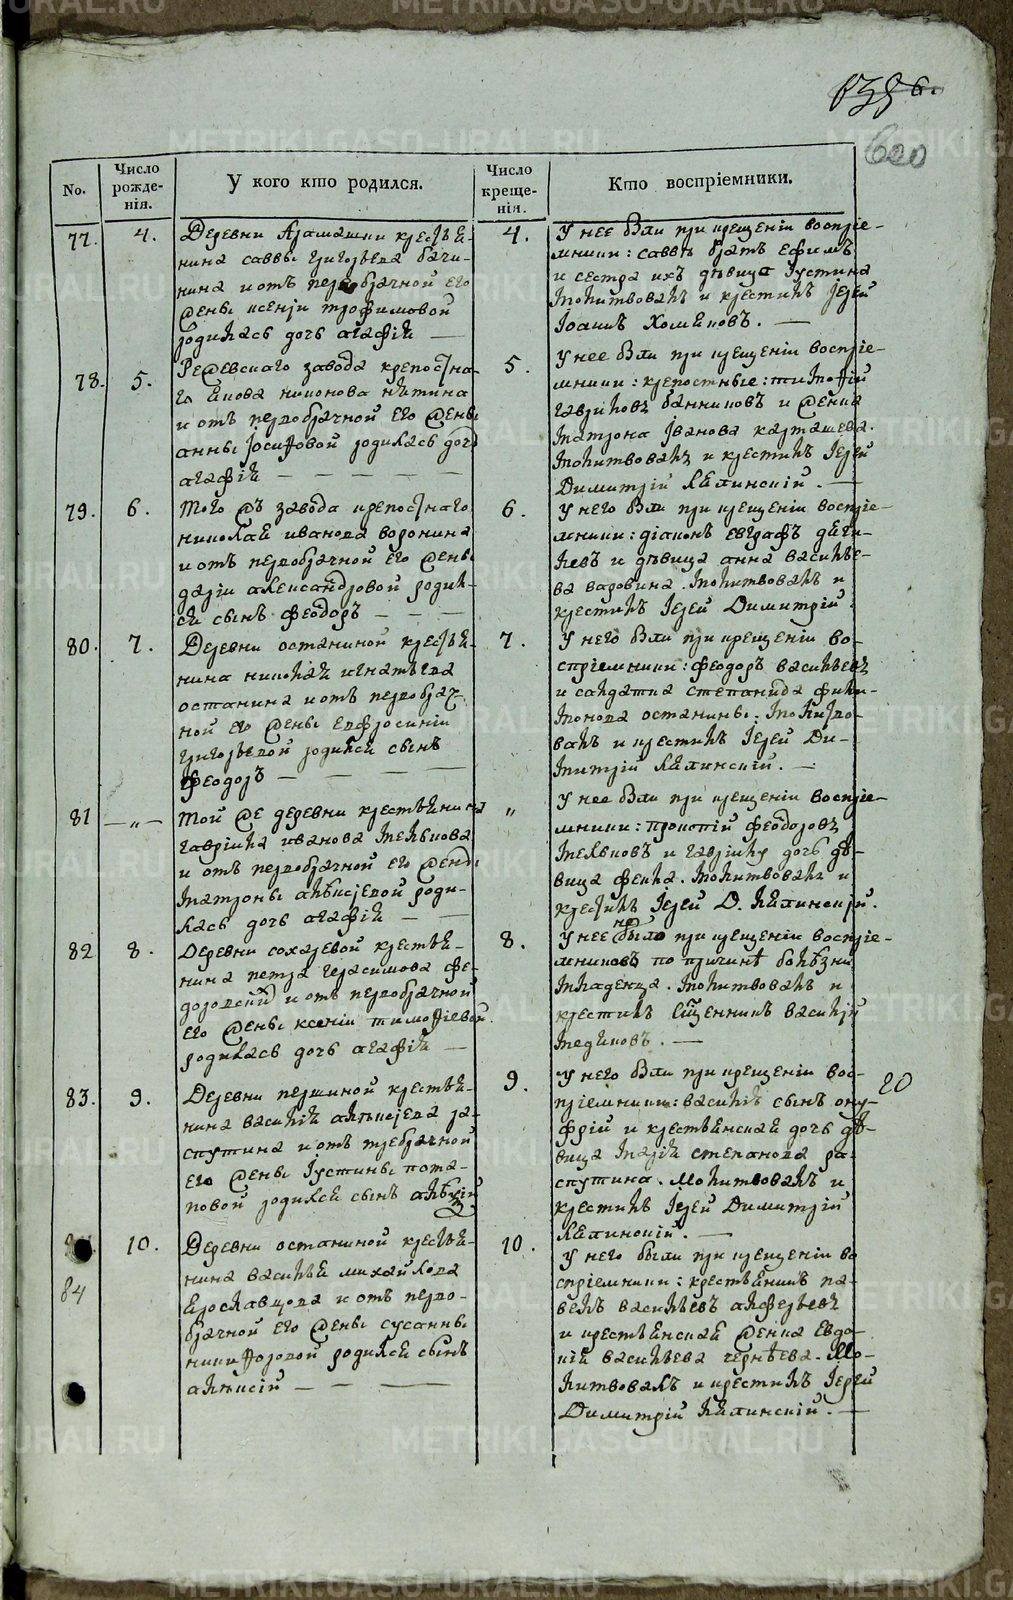 600
No.
Число рожде-нія.
У кого кто родился.
Число креще-нія.
Кто воспріемники.
77.
4.
Деревни Арамашки крестья-
нина саввы григорьева бачи-
нина и отъ первобрачной его
жены ксеніи трофимовой
родилась дочь агафія
4.
У нее были при крещеніи воспріе-
мники: саввы братъ ефимъ
и сестра ихъ дѣвица Іустина
Молитвовалъ и крестилъ Іерей
Іоаннъ Хомяковъ.
78.
5.
Режевскаго завода крепостна-
го якова никонова
и отъ первобрачной его жены
анны Іосифовой родилась дочь
агафія
5.
У нее были при крещеніи воспріе-
мники: крепостные: тимофій
гавриловъ банниковъ и женка
Матрона Іванова карташева.
Молитвовалъ и крестилъ Іерей
Димитрій Ляпинскій.
79.
6.
Того жъ завода крепостнаго
николая иванова воронина
и отъ первобрачной его жены
даріи александровой родил-
ся сынъ феодоръ
6.
У него были при крещеніи воспріе-
мники: діаконъ евграфъ
и дѣвица анна василье-
ва варовина. Молитвовалъ и
крестилъ Іерей Димитрій
80.
7.
Деревни останиной крестья-
нина николая игнатьева
останина и отъ первобрач-
ной его жены евфросиніи
григорьевой родился сынъ
Феодоръ
7.
У него были при крещеніи во-
спріемники: феодоръ васильевъ
и салдатка степанида фили-
монова останины. Молитво-
валъ и крестилъ Іерей Ди-
митрій Ляпинскій.
81
— „ —
Той же деревни крестьянина
гавріила иванова
и отъ первобрачной его жены
матроны алѣксіевой роди-
лась дочь агафія
„
У нее были при крещеніи воспріе-
мники: прокопій феодоровъ
и гавріила дочь дѣ-
вица фекла. Молитвовалъ и
крестилъ Іерей Д. Ляпинскій.
82
8.
Деревни сохаревой крестья-
нина петра герасимова фе-
доровскихъ и отъ первобрачной
его жены ксеніи тимофіевой
родилась дочь агафія
8.
У нее не было при крещеніи воспріе-
мниковъ по причинѣ болѣзни
младенца. Молитвовалъ и
крестилъ священникъ василій
83.
9.
Деревни першиной крестья-
нина василія алѣксіева ра-
спутина и отъ требрачной
его жены Іустины пота-
повой родился сынъ алѣксій
9.
У него были при крещеніи вос-
пріемники: василія сынъ ону-
фрій и крестьянская дочь дѣ-
вица марія степанова ра-
спутина. Молитвовалъ и
крестилъ Іерей Димитрій
Ляпинскій.
20
84
10.
Деревни останиной крестья-
нина василья михайлова
Ярославцова и отъ перво-
брачной его жены сусанны
никифоровой родился сынъ
алѣксій
10.
У него были при крещеніи во
спріемники: крестьянинъ па-
велъ васильевъ алферьевъ
и крестьянская женка Евдо-
кія васильева чернѣева. Мо-
литвовалъ и крестилъ Іерей
Димитрій Ляпинскій.
METRIKI.GASO-URAL.RU